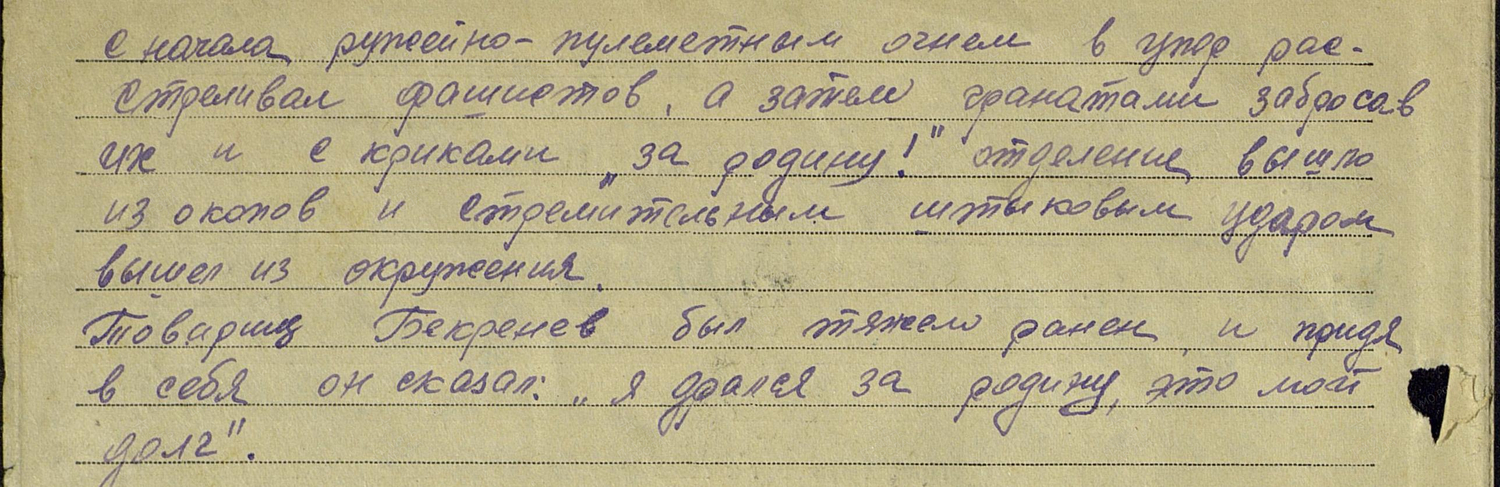 с начала ружейно-пулеметным огнем в упор рас-
стреливал фашистов, а затем гранатами забросав
их и с криками „за родину!" отделение вышло
из окопов и стремительным штыковым ударом
вышел из окружения.
Товарищ Бекренев был тяжело ранен, и придя
в себя он сказал: „я дрался за родину, это мой
долг".